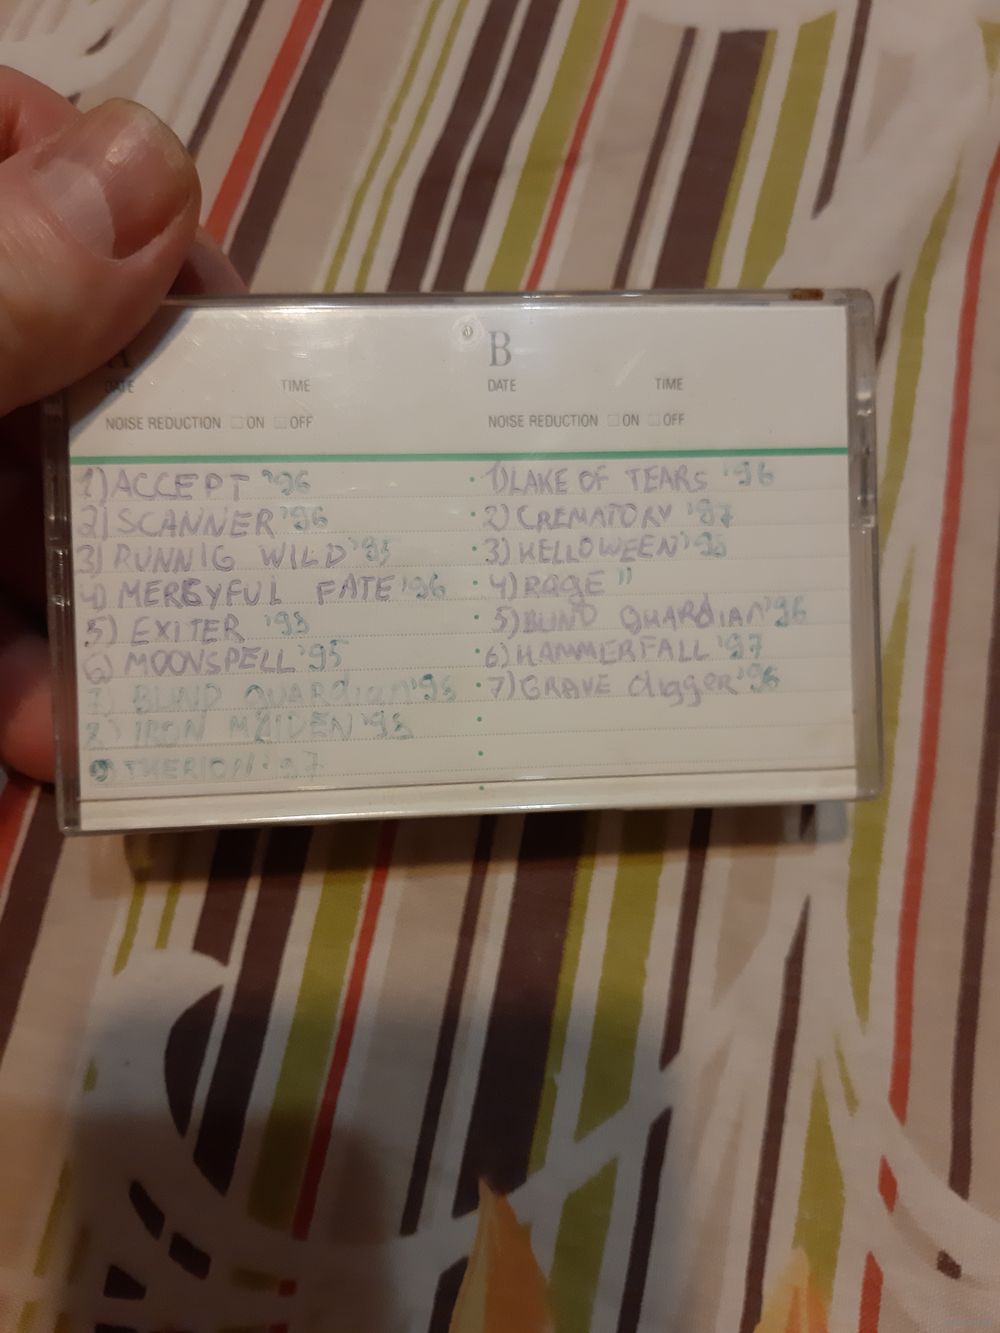 A
DATE TIME
NOISE REDUCTION ON OFF
1) ACCEPT '96
2) SCANNER '96
3) RUNNIG WILD '95
4) MERCYFUL FATE '96
5) EXITER '98
6) MOONSPELL '95
7) BLIND GUARdian '96
8) IRON MAIDEN '98
9) THERION '97
B
DATE TIME
NOISE REDUCTION ON OFF
1) LAKE OF TEARS '96
2) CREMATORY '97
3) HELLOWEEN '98
4) RAGE "
5) BLIND GUARdiAN '96
6) HAMMERFALL '97
7) GRAVE digger '96